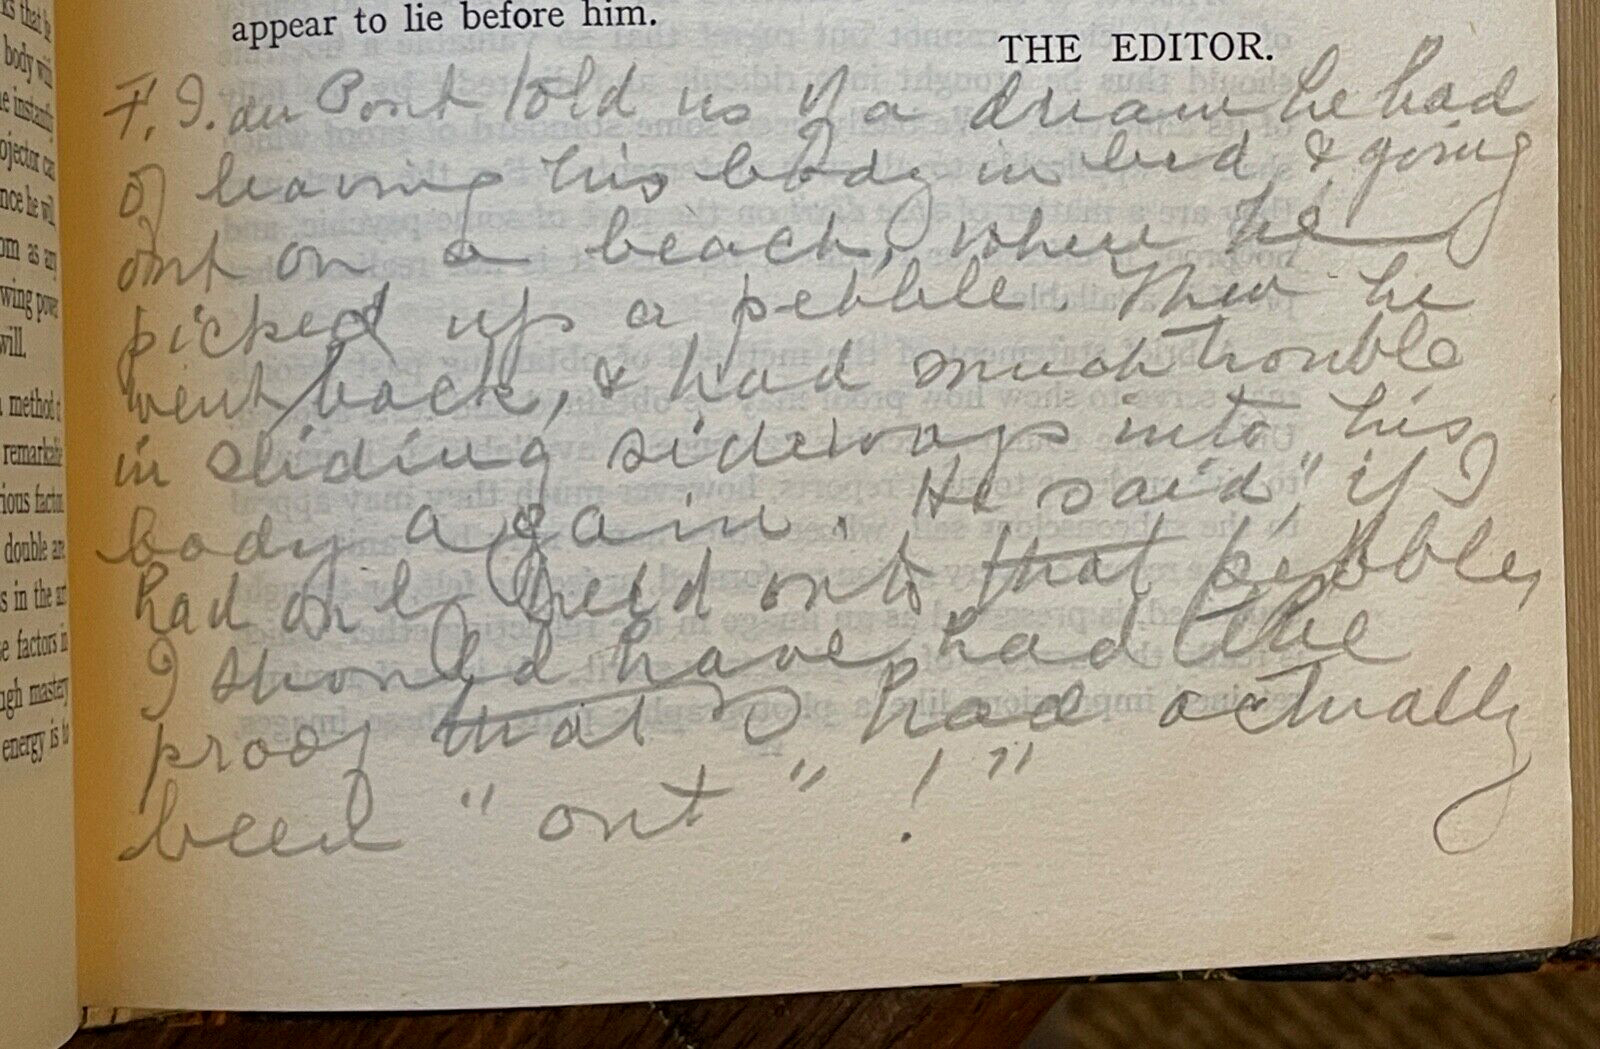 appear to lie before him.
THE EDITOR.
F. I. du Pont told us of a dream he had
of leaving his body in bed, & going
out on a beach, where he
picked up a pebble. Then he
went back, & had much trouble
in sliding sideways into his
body again. He said "if I
had only held onto that pebble,
I should have had the
proof that I had actually
been "out" ! "
ks that he
body with
e instantly
ojector can
nce he will
om as any
wing power
will.
method of
remarkable
ious factor
double are
s in the art
se factors in
ugh mastery
energy is to